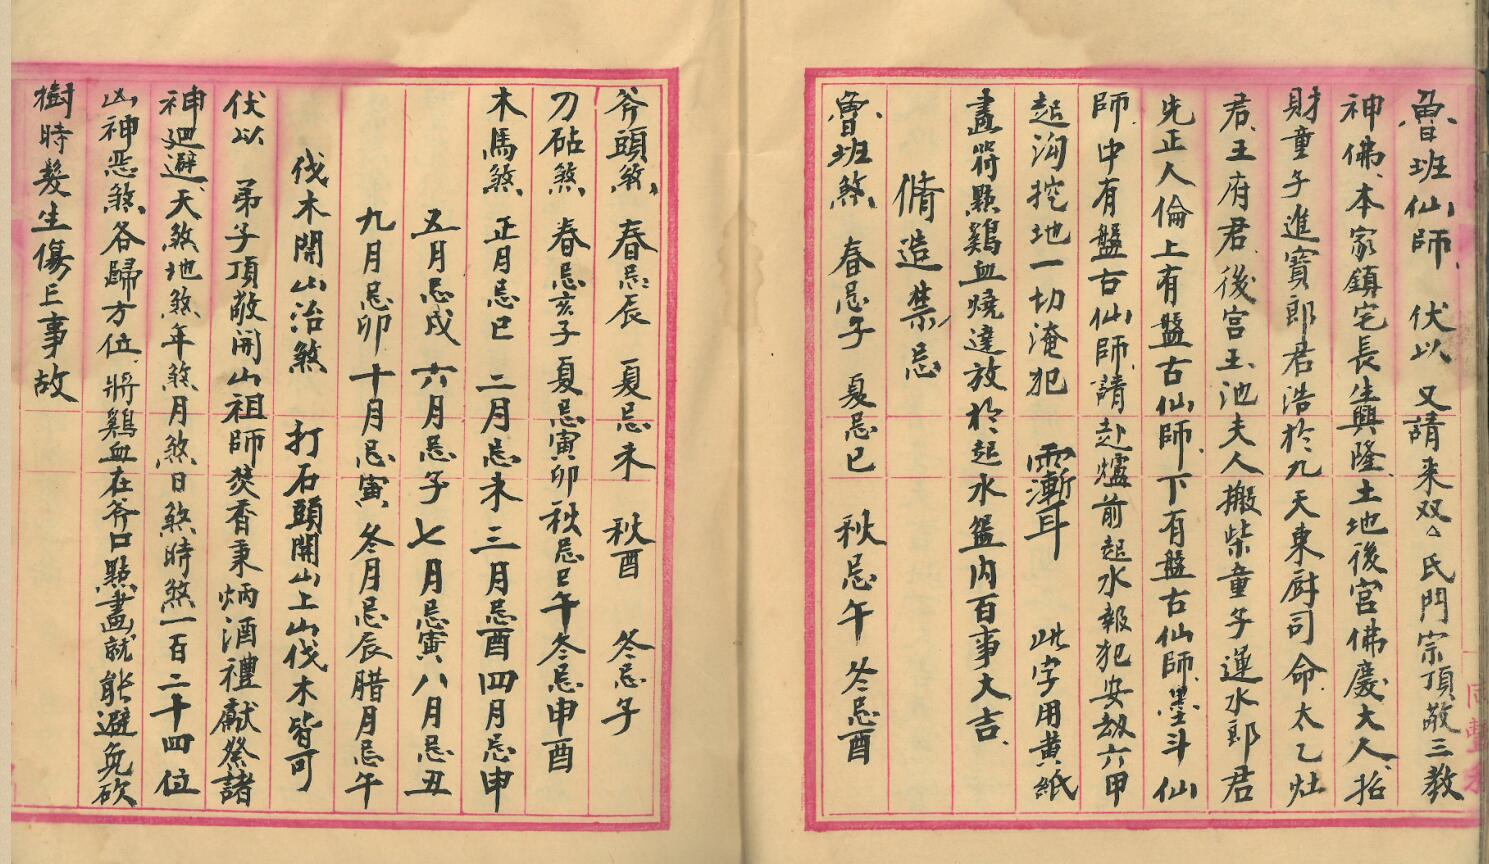 魯班仙師 伏以 又請来双△氏門宗頂敬三教
神佛、本家鎮宅長生興隆土地後宮佛慶大人、招
財童子進寶郎君浩於九天東厨司命太乙灶
君、王府君、後宫王池夫人搬柴童子運水郎君
先正人倫上有盤古仙師、下有盤古仙師、墨斗仙
師、中有盤古仙師、請赴爐前起水報犯安刼六甲
起溝挖地一切淹犯 耳 此字用黄紙
畫符點鷄血燒達放於起水盤内百事大吉、
脩造禁忌
魯班煞、春忌子 夏忌巳 秋忌午 冬忌酉
斧頭煞、春忌辰 夏忌未 秋酉 冬忌子
刀砧煞、春忌亥子 夏忌寅卯 秋忌巳午 冬忌申酉
木馬煞、正月忌巳 二月忌未 三月忌酉 四月忌申
五月忌戌 六月忌子 七月忌寅 八月忌丑
九月忌卯 十月忌寅 冬月忌辰 腊月忌午
伐木開山治煞 打石頭開山上山伐木皆可
伏以 弟子頂敬開山祖師焚香秉炳酒禮獻祭諸
神廻避、天煞地煞年煞月煞日煞時煞一百二十四位
凶神恶煞、各歸方位、將鷄血在斧口點畫就能避免砍
樹時髮生傷亡事故